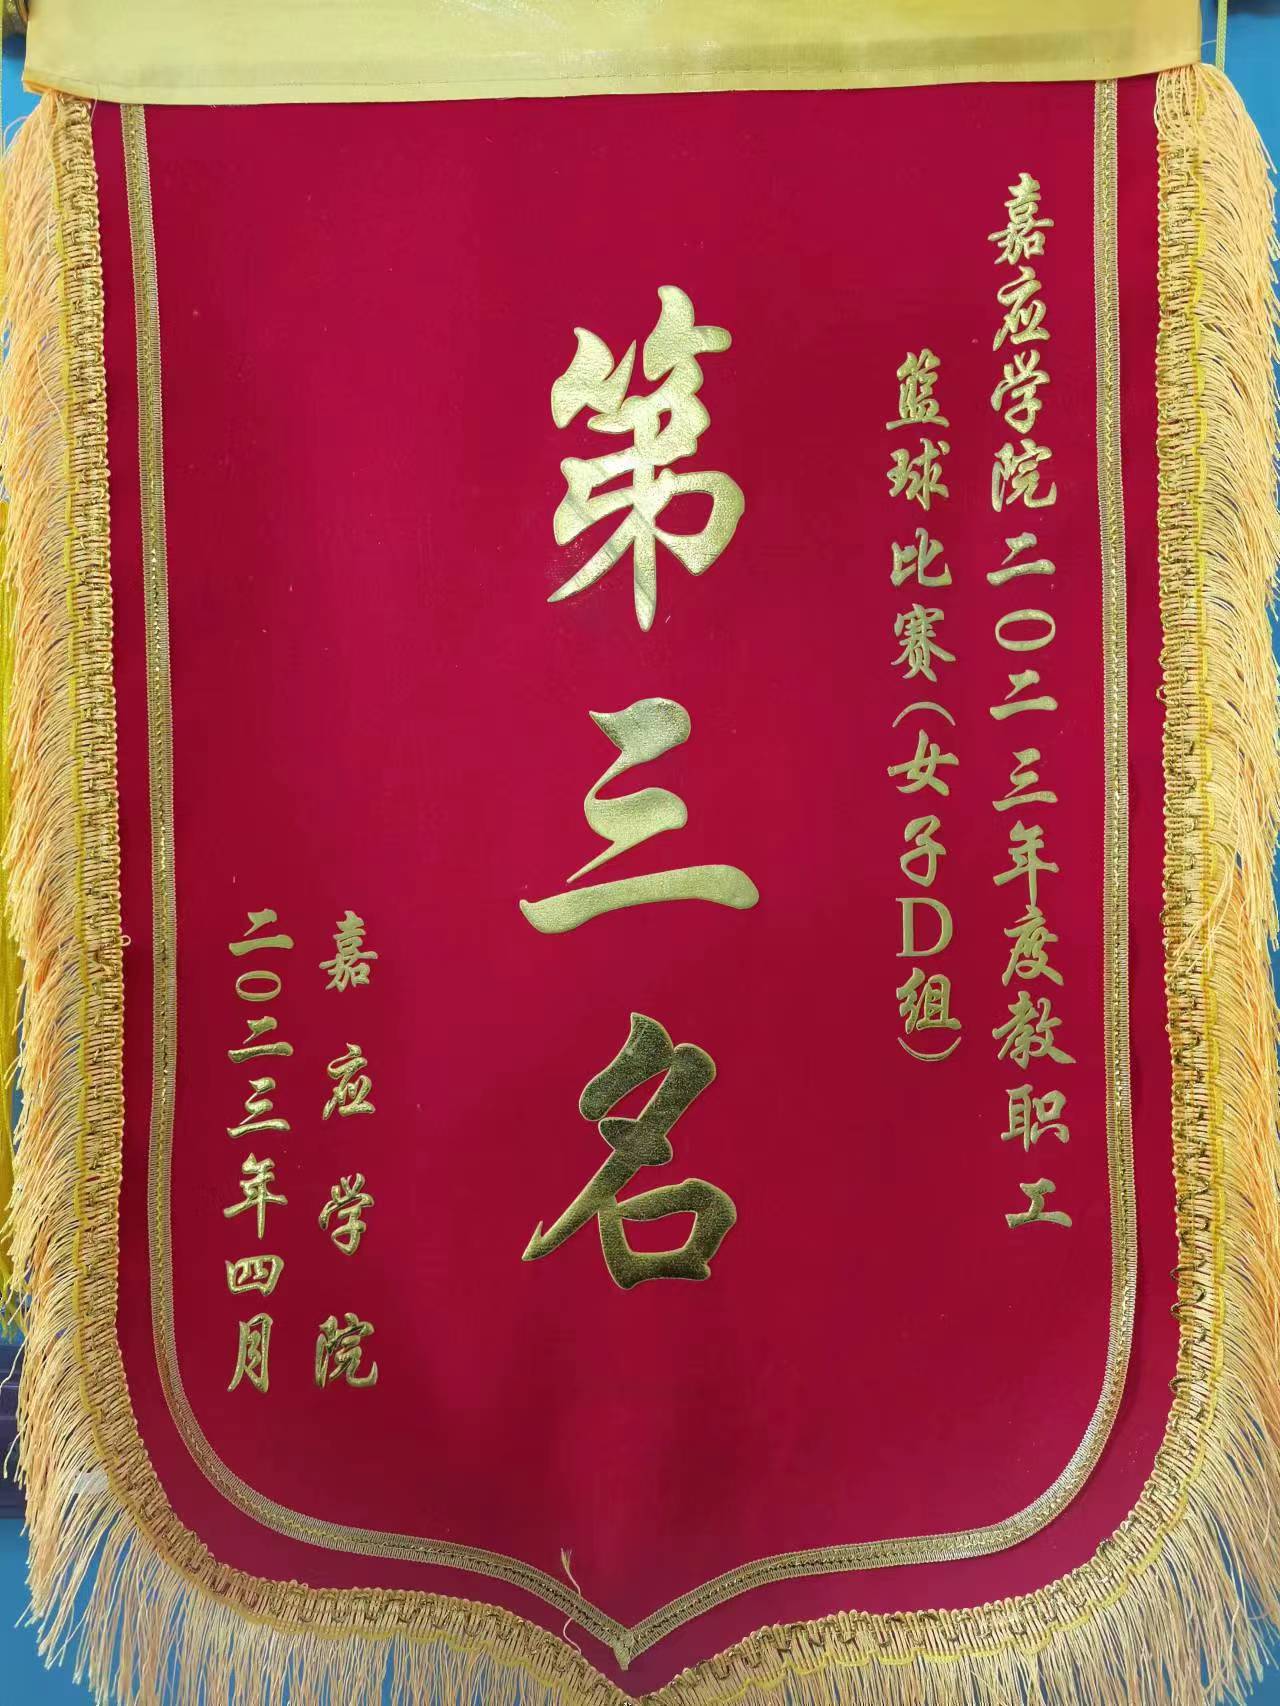 嘉应学院二〇二三年度教职工
篮球比赛(女子D组)
第三名
嘉应学院
二〇二三年四月